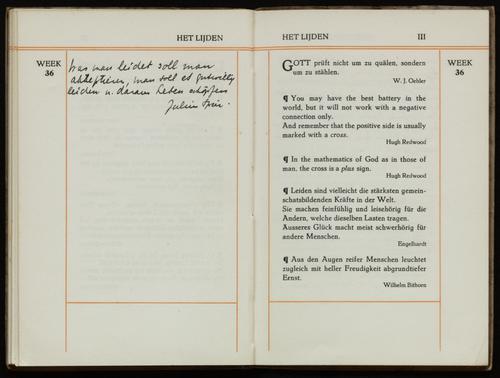 HET LIJDEN
WEEK
36
Was man leidet soll man
akzeptieren, man soll es gutwillig
leiden u. daraus Leben schöpfen
HET LIJDEN III
WEEK
36
GOTT prüft nicht um zu quälen, sondern
um zu stählen.
W. J. Oehler
¶ You may have the best battery in the
world, but it will not work with a negative
connection only.
And remember that the positive side is usually
marked with a cross.
Hugh Redwood
¶ In the mathematics of God as in those of
man, the cross is a plus sign.
Hugh Redwood
¶ Leiden sind vielleicht die stärksten gemein-
schaftsbildenden Kräfte in der Welt.
Sie machen feinfühlig und leisehörig für die
Andern, welche dieselben Lasten tragen.
Ausseres Glück macht meist schwerhörig für
andere Menschen.
Engelhardt
¶ Aus den Augen reifer Menschen leuchtet
zugleich mit heller Freudigkeit abgrundtiefer
Ernst.
Wilhelm Bithorn